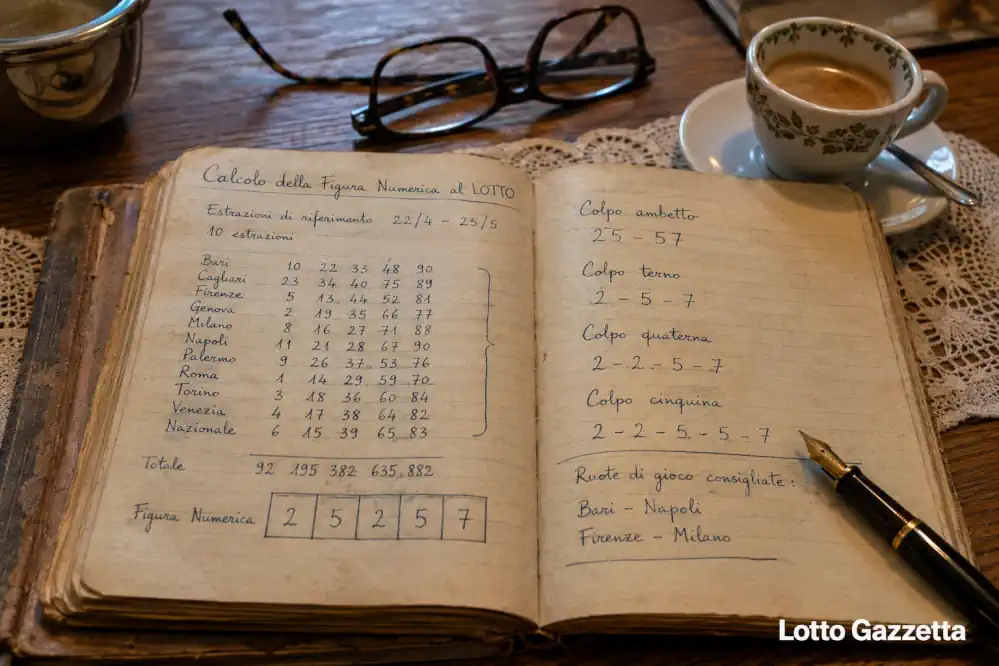 Calcolo della Figura Numerica al LOTTO
Estrazioni di riferimento 22/4 - 25/5
10 estrazioni
Bari 10 22 33 48 90
Cagliari 23 34 40 75 89
Firenze 5 13 44 52 81
Genova 2 19 35 66 77
Milano 8 16 27 71 88
Napoli 11 21 28 67 90
Palermo 9 26 37 53 76
Roma 1 14 29 59 70
Torino 3 18 36 60 84
Venezia 4 17 38 64 82
Nazionale 6 15 39 65 83
Totale 92 195 382 635 882
Figura Numerica 2 5 2 5 7
Colpo ambetto
25 - 57
Colpo terno
2 - 5 - 7
Colpo quaterna
2 - 2 - 5 - 7
Colpo cinquina
2 - 2 - 5 - 5 - 7
Ruote di gioco consigliate:
Bari - Napoli
Firenze - Milano
Lotto Gazzetta